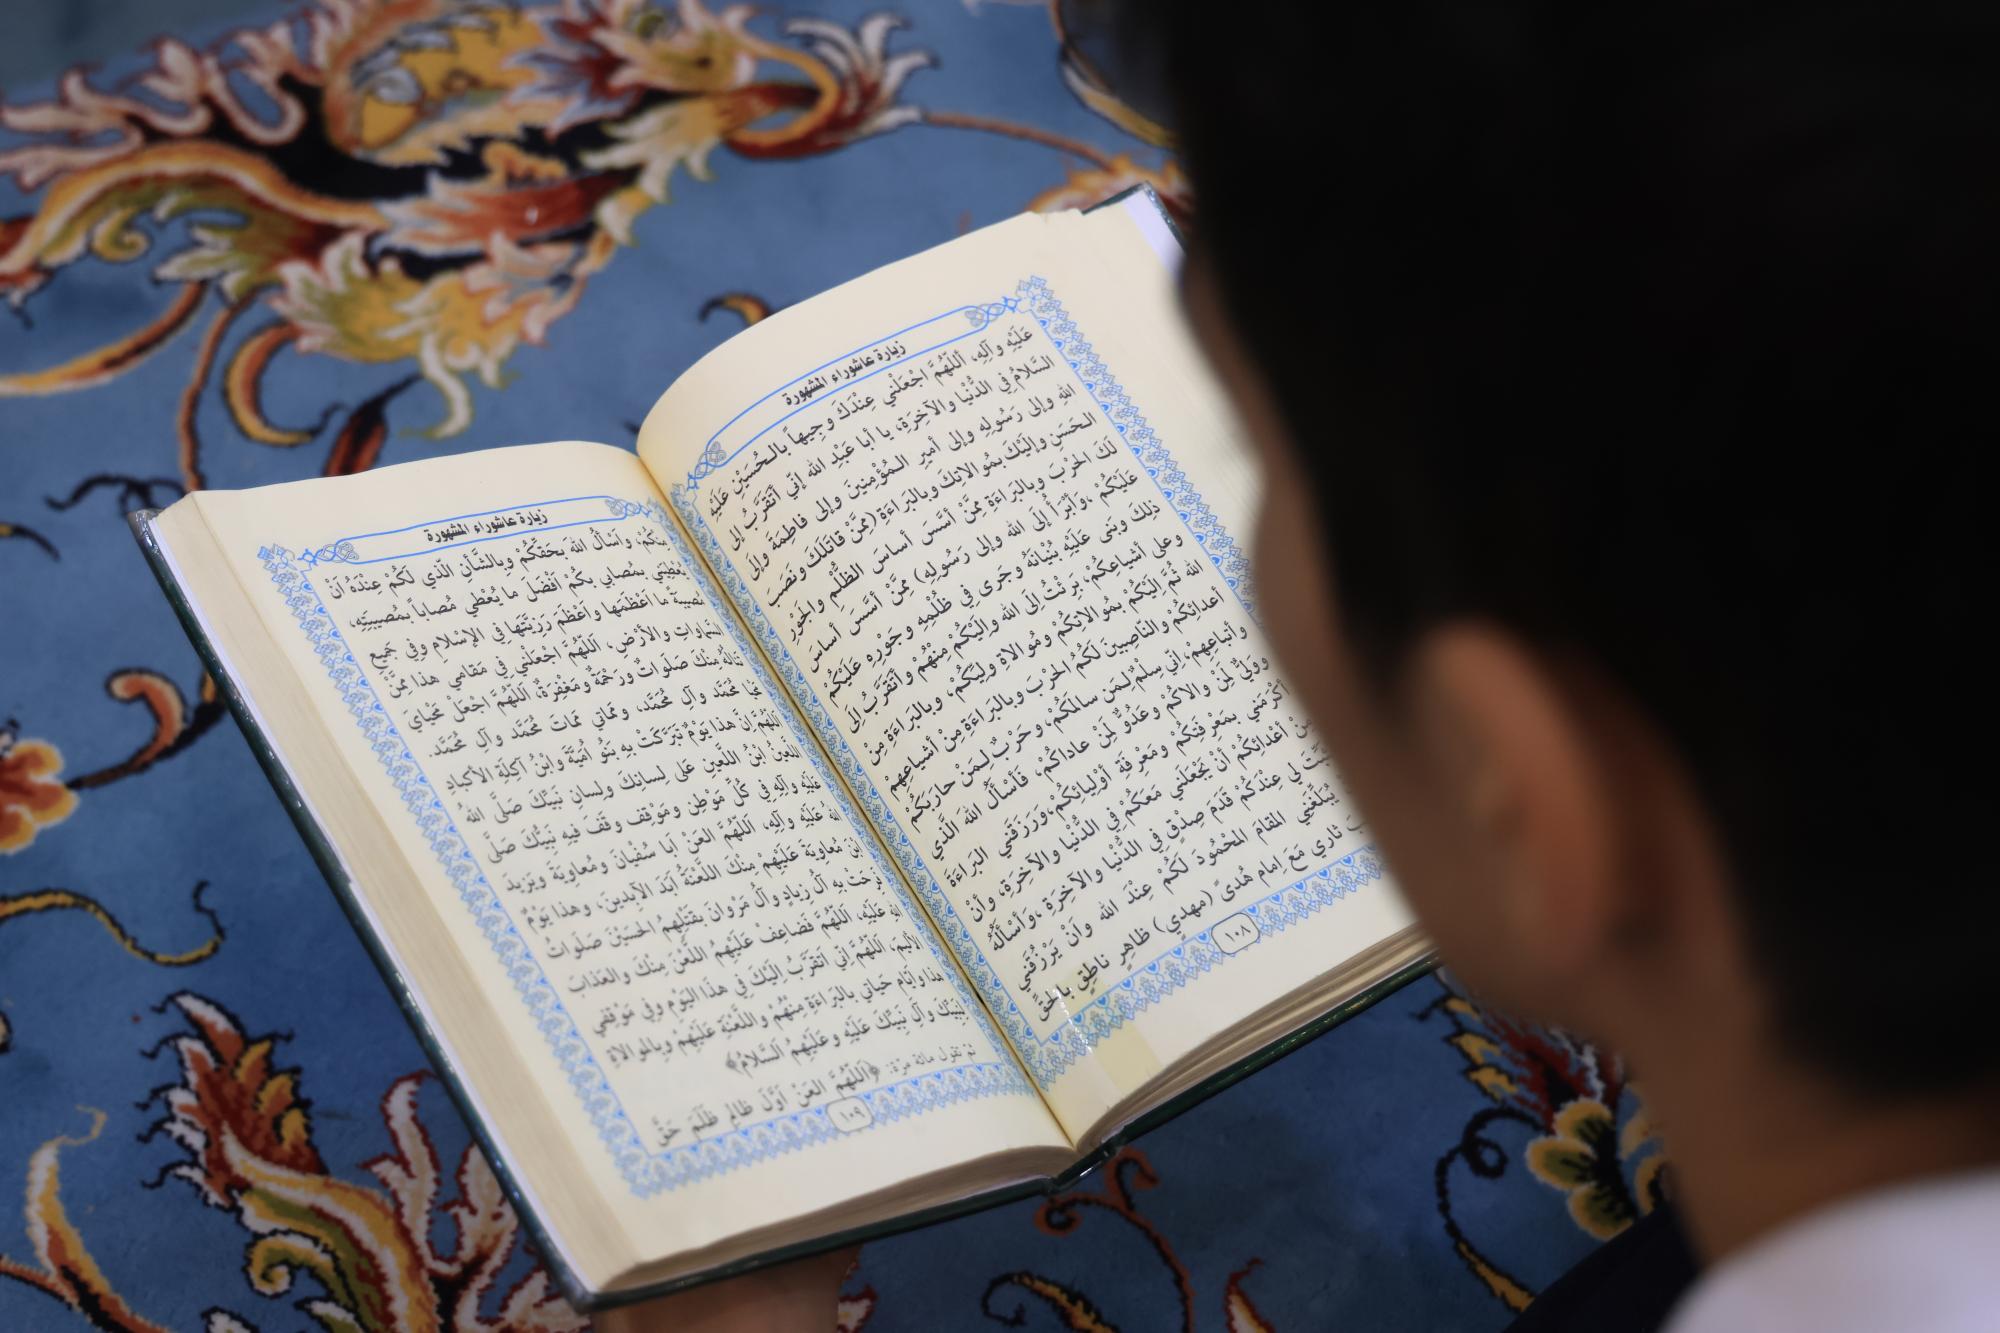 زيارة عاشوراء المشهورة
عَلَيْهِ وآلِهِ، اَللّهُمَّ اجْعَلْني عِنْدَكَ وَجِيهاً بالـحُسَيْنِ عَلَيْهِ
السَّلامُ فِي الدُّنْيا والآخِرَةِ، يا أبا عَبْدِ الله إنّي أتَقَرَّبُ إلى
اللهِ وإلى رَسُولِهِ وإلى أميرِ الـمُؤْمِنينَ وإلى فاطِمَةَ وإلَى
الـحَسَنِ وإلَيْكَ بمُوالاتِكَ وبالبَراءَةِ (مِمَّنْ قاتَلَكَ ونَصَبَ
لَكَ الحَرْبَ وبالبَراءَةِ مِمَّنْ أسَّسَ أساسَ الظُّلْمِ والجَوْرِ
عَلَيْكُمْ ،وَأبْرَأُ إلَى الله وإلى رَسُولِهِ) مِمَّنْ أسَّسَ أساسَ
ذلِكَ وبَنى عَلَيْهِ بُنْيانَهُ وجَرى فِي ظُلْمِهِ وجَوْرِهِ عَلَيْكُمْ
وعلى أشياعِكُمْ، بَرِئْتُ إلَى الله وإلَيْكُمْ مِنْهُمْ وأتَقَرَّبُ إلَى
الله ثُمَّ إلَيْكُمْ بمُوالاتِكُمْ ومُوالاةِ وليّكُمْ، وبالبَراءَةِ مِنْ
أعدائِكُمْ والنّاصِبينَ لَكُمُ الحَرْبَ وبالبَراءَةِ مِنْ أشياعِهِمْ
وأتباعِهِمْ، إنّي سِلْمٌ لِـمَن سالَمَكُمْ، وحَرْبٌ لِـمَنْ حارَبَكُمْ
ووَليٌّ لِمَنْ والاكُمْ وعَدُوٌّ لِمَنْ عاداكُمْ، فَأسْألُ اللهَ الَّذي
أكْرَمَني بمَعْرِفَتِكُمْ ومَعْرِفَةِ أوْلِيائِكُمْ،ورَزَقَني البَراءَةَ
مِنْ أعدائِكُمْ أنْ يَجْعَلَني مَعَكُمْ فِي الدُّنْيا والآخِرَةِ، وأنْ
لي عِنْدَكُمْ قَدَمَ صِدْقٍ فِي الدُّنْيا والآخِرَةِ ،وَأسْألُهُ
يُبَلِّغَنِي المَقامَ المَحْمُودَ لَكُمْ عِنْدَ الله وَأنْ يَرْزُقَني
ثاري مَعَ اِمامِ هُدىً (مهدي) ظاهِرٍ ناطِقٍ بالحَقِّ
١٠٨
زيارة عاشوراء المشهورة
مِنكُمْ، وأسْألُ اللهَ بحَقِّكُمْ وبِالشَّأنِ الَّذي لَكُمْ عِنْدَهُ اَنْ
يُعْطِيَني بمُصابي بكُمْ اَفْضَلَ ما يُعْطي مُصاباً بمُصيبَتِهِ،
مُصيبَةً ما اَعْظَمَها واَعْظَمَ رَزِيَّتَها فِي الإسْلامِ وفِي جَميعِ
السَّماواتِ والأرْضِ، اَللّهُمَّ اجْعَلْني فِي مَقامي هذا مِمَّنْ
تَنالُهُ مِنْكَ صَلَواتٌ ورَحْمَةٌ ومَغْفِرَةٌ، اَللّهُمَّ اجْعَلْ مَحْيايَ
مَحْيا مُحَمَّد وآلِ مُحَمَّد، ومَماتي مَماتَ مُحَمَّد وآلِ مُحَمَّد.
اَللّهُمَّ اِنَّ هذا يَوْمٌ تَبَرَّكَتْ بِهِ بَنُو اُمَيَّةَ وابْنُ آكِلَةِ الأكبادِ
اللَّعينُ ابْنُ اللَّعينِ عَلى لِسانِكَ ولِسانِ نَبيِّكَ صَلَّى اللهُ
عَلَيْهِ وآلِهِ فِي كُلِّ مَوْطِنٍ ومَوْقِفٍ وقَفَ فيهِ نَبيُّكَ صَلَّى
اللهُ عَلَيْهِ وآلِهِ، اَللّهُمَّ العَنْ اَبا سُفْيانَ ومُعاوِيَةَ ويَزيدَ
ابْنَ مُعاوِيَةَ عَلَيْهِمْ مِنْكَ اللَّعْنَةُ اَبَدَ الآبِدينَ، وهذا يَوْمٌ
فَرِحَتْ بِهِ آلُ زِيادٍ وآلُ مَرْوانَ بقَتْلِهِمُ الحُسَيْنَ صَلَواتُ
اللهِ عَلَيْهِ، اَللّهُمَّ فَضاعِفْ عَلَيْهِمُ اللَّعْنَ مِنْكَ والعَذابَ
الأليمَ، اَللّهُمَّ اِنّي اَتَقَرَّبُ اِلَيْكَ فِي هذَا اليَوْمِ وفِي مَوْقِفي
هذا وأيّامِ حَياتي بالبَراءَةِ مِنْهُمْ واللَّعْنَةِ عَلَيْهِمْ وبالموالاةِ
لِنَبيِّكَ وآلِ نَبيِّكَ عَلَيْهِ وعَلَيْهِمُ اَلسَّلامُ﴾
ثم تقول مائة مرّة: ﴿اَللّهُمَّ العَنْ اَوَّلَ ظالِمٍ ظَلَمَ حَقَّ
١٠٩